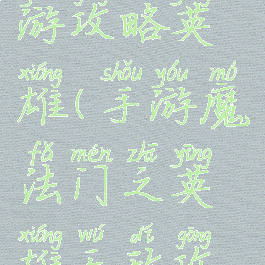 游攻略英
xióng shǒu yóu mó
雄(手游魔
fǎ mén zhī yīng
法门之英
xióng wú dí gōng
雄无敌攻